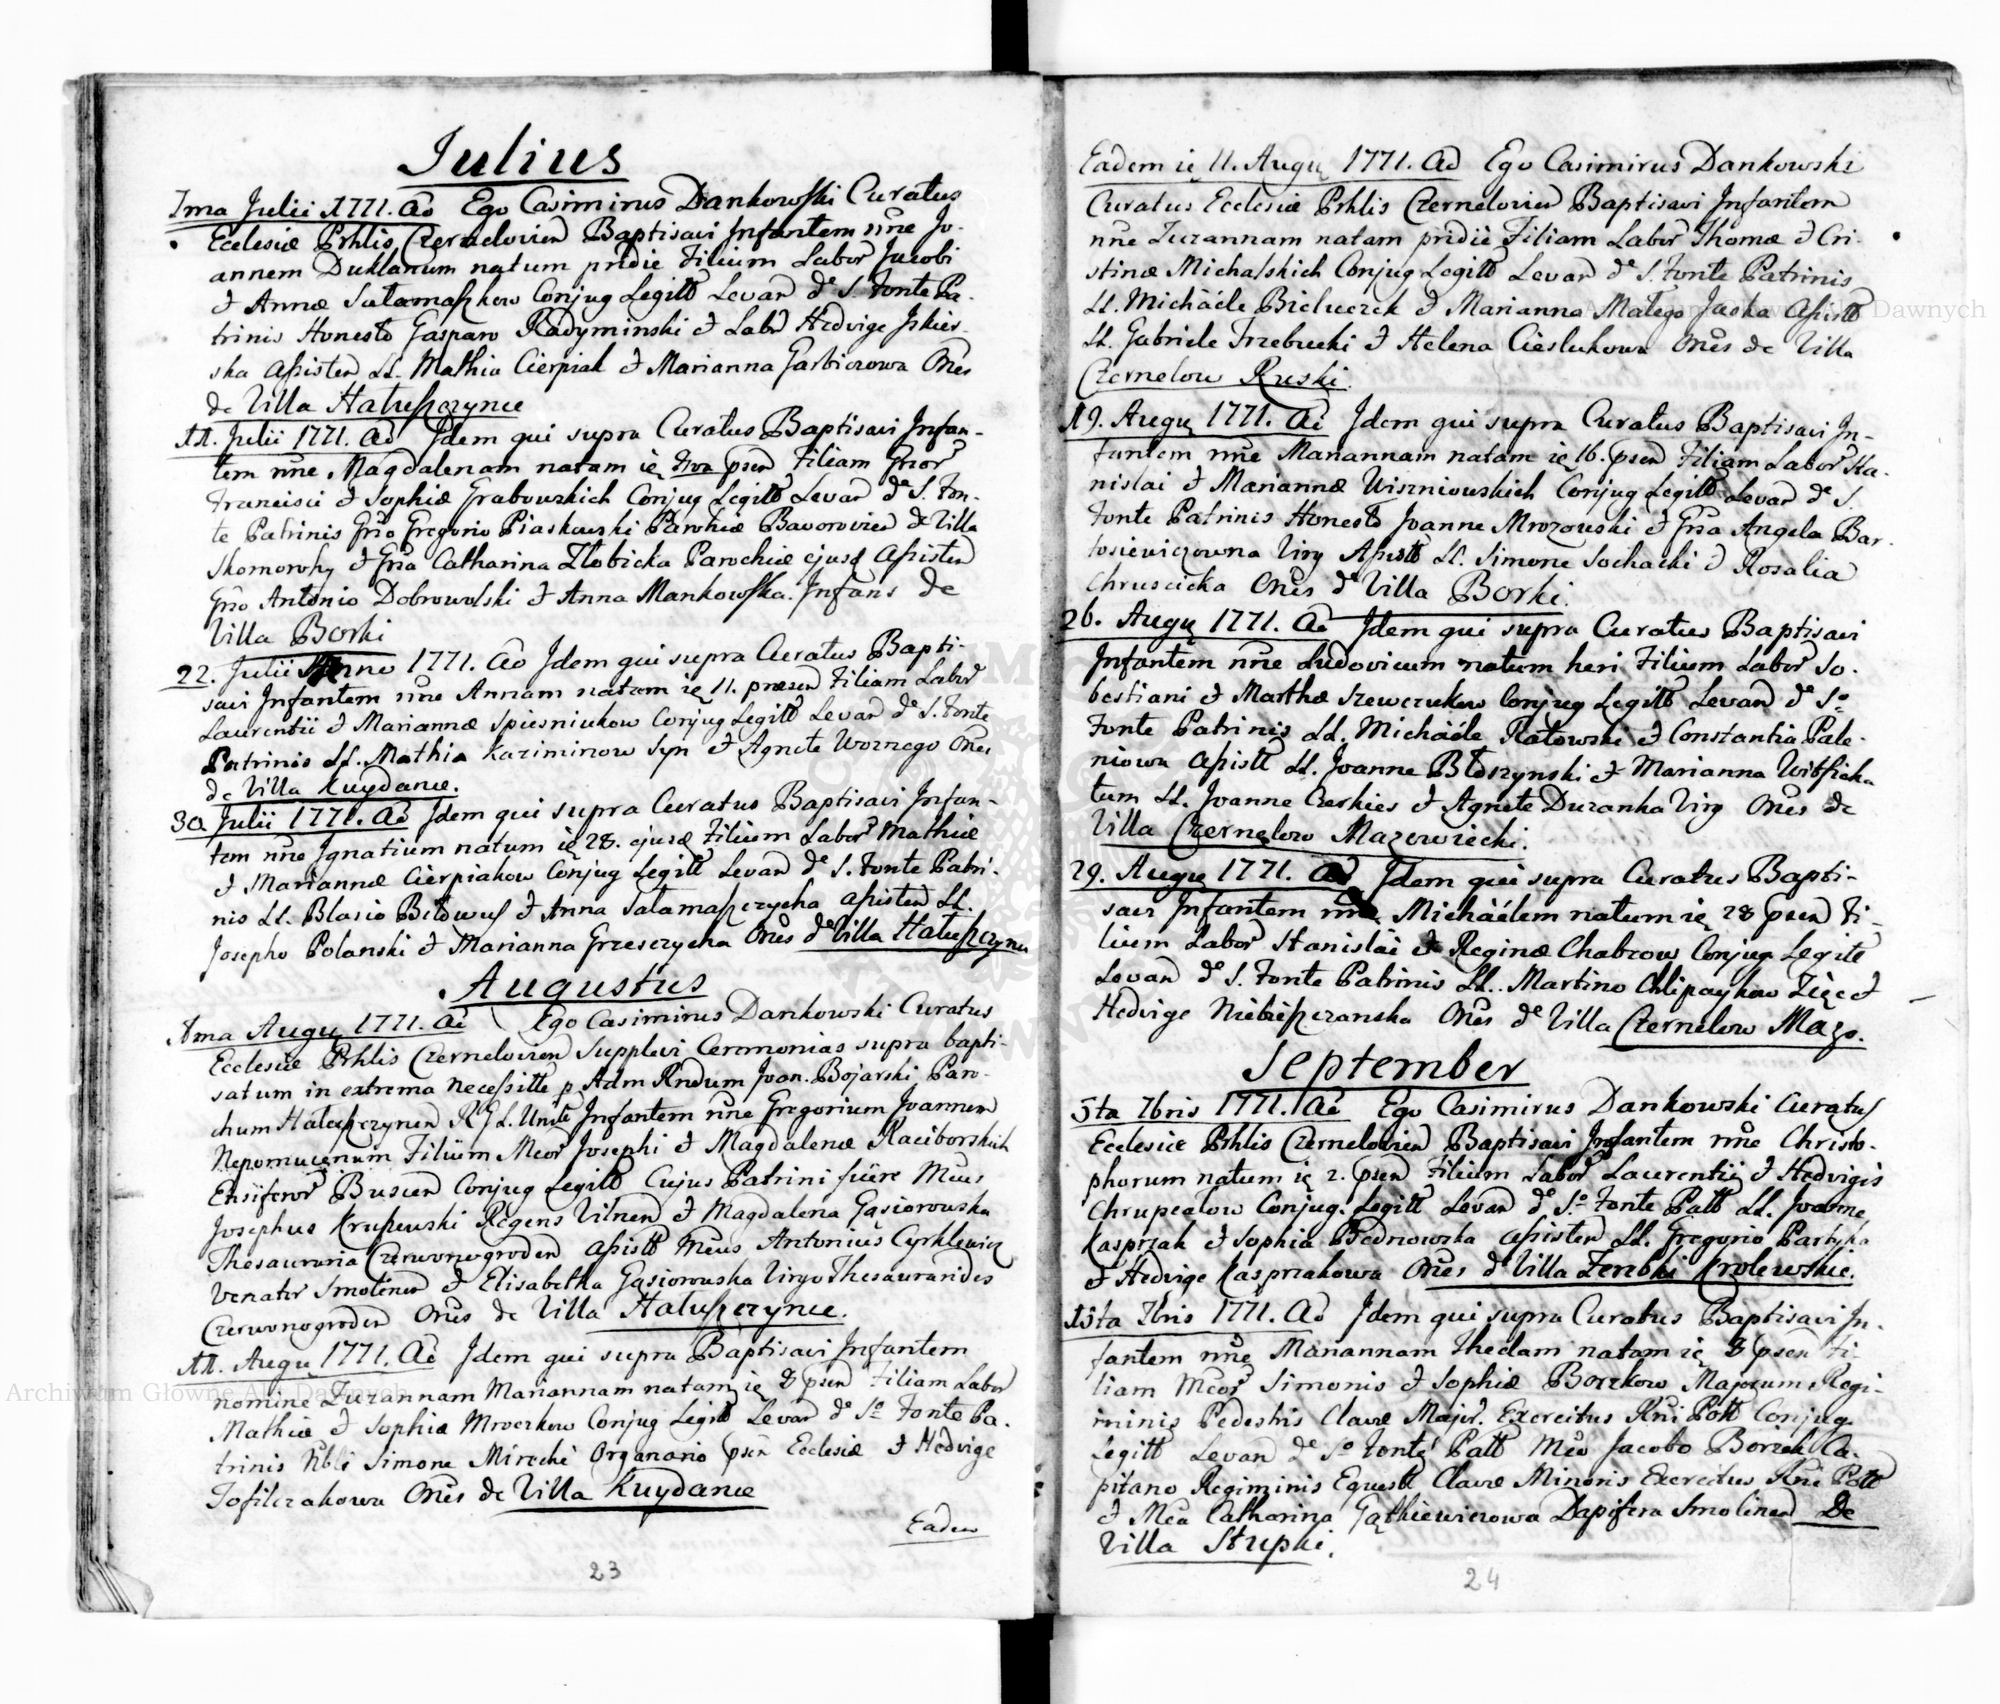 Iulius
1ma Julii 1771. Ao Ego Casimirus Dankowski Curatus
Ecclesiæ Prhlis Czernelovien Baptisavi Infantem nñe Jo-
annem Duklanum natum pridie Filium Labor Jacobi
& Annæ Salamaszkow Conjug Legitt Levan de S. Fonte Pa-
trinis Honesto Gasparo Radyminski & Labor Hedvige Iskier-
ska Assisten LL. Mathia Cierpiak & Marianna Garbiczowa Oñes
de Villa Hatuszczynce
11. Julii 1771. Ao Idem qui supra Curatus Baptisavi Infan-
tem nñe Magdalenam natam ię 7ma psen Filiam Gñor
Francisci & Sophiæ Grabowskich Conjug Legitt Levan de S. Fon-
te Patrinis Gño Gregorio Piaskowski Parohiæ Baworovien de Villa
Skomorohy & Gña Catharina Złobicka Parochiæ ejusd Assisten
Gño Antonio Dobrowolski & Anna Mankowska. Infans de
Villa Borki
22. Julii Anno 1771. Ao Idem qui supra Curatus Bapti-
savi Infantem nñe Annam natam ię 11. præsen Filiam Labor
Laurentii & Mariannæ Spiesniukow Conjug Legitt Levan de S. Fonte
Patrinis LL. Mathia Kazimirow Syn & Agnete Woznego Oñes
de Villa Kuydance.
30 Julii 1771. Ao Idem qui supra Curatus Baptisavi Infan-
tem nñe Ignatium natum ię 28. ejusd Filium Labor Mathiæ
& Mariannæ Cierpiakow Conjug Legitt Levan de S. Fonte Patri-
nis LL. Blasio Biłowus & Anna Salamaszczycha Assisten LL.
Josepho Polanski & Marianna Grzesczycha Oñes de Villa Hatuszczynce
Augustus
1ma Augu 1771. Ao Ego Casimirus Dankowski Curatus
Ecclesiæ Prhlis Czernelovien Supplevi Ceremonias supra bapti-
satum in extrema necessitte p Adm Rndum Joan. Bojarski Paro-
chum Hatuszczynen R. G. L. Unite Infantem nñe Gregorium Joannem
Nepomucenum Filium Mcor Josephi & Magdalenæ Raciborskich
Ensiferor Buscen Conjug Legitt Cujus Patrini fuere Mcus
Josephus Kruszewski Regens Vilnen & Magdalena Gąsiorowska
Thesauraria Czerwonogroden Assistt Mcus Antonius Cyrklewicz
Venator Smolenen & Elisabetha Gąsiorowska Virgo Thesaurarides
Czerwonogroden Oñes de Villa Hatuszczynce.
11. Augu 1771. Ao Idem qui supra Baptisavi Infantem
nomine Zuzannam Mariannam natam ię 8 psen Filiam Labor
Mathiæ & Sophiæ Mroczkow Conjug Legitt Levan de So Fonte Pa-
trinis Nbli Simone Mirecki Organario psen Ecclesiæ & Hedvige
Tofilczakowa Oñes de Villa Kuydance
Eadem
23
Eadem ię 11. Augu 1771. Ao Ego Casimirus Dankowski
Curatus Ecclesiæ Prhlis Czernelovien Baptisavi Infantem
nñe Zuzannam natam pridie Filiam Labor Thomæ & Cri-
stinæ Michalskich Conjug Legitt Levan de S. Fonte Patrinis
LL. Michäéle Bieluczek & Marianna Małego Jaska Assistt
LL. Gabriele Trzebucki & Helena Cieslukowa Oñes de Villa
Czernelow Ruski.
19. Augu 1771. Ao Idem qui supra Curatus Baptisavi In-
fantem nñe Mariannam natam ię 16. psen Filiam Labor Sta-
nislai & Mariannæ Wiszniowskich Conjug Legitt Levan de S.
Fonte Patrinis Honesto Joanne Mrozowski & Gña Angela Bar-
tosiewiczowna Virg Assistt LL. Simone Sochacki & Rosalia
Chruscicka Oñes de Villa Borki.
26. Augu 1771. Ao Idem qui supra Curatus Baptisavi
Infantem nñe Ludovicum natum heri Filium Labor Se-
bestiani & Marthæ Szewczukow Conjug Legitt Levan de So
Fonte Patrinis LL. Michäéle Ratowski & Constantia Pale-
niowa Assistt LL. Joanne Błoszynski & Marianna Witficka
tum LL. Joanne Czerkies & Agnete Duzanka Virg Oñes de
Villa Czernelow Mazowiecki.
29. Augu 1771. Ao Idem qui supra Curatus Bapti-
savi Infantem nñe Michäélem natum ię 28 psen Fi-
lium Labor Stanislai & Reginæ Chabrow Conjug Legitt
Levan de S. Fonte Patrinis LL. Martino Chlipaykow Zięc &
Hedvige Niebieszczanska Oñes de Villa Czernelow Mazo.
September
5ta 7bris 1771. Ao Ego Casimirus Dankowski Curatus
Ecclesiæ Prhlis Czernelovien Baptisavi Infantem nñe Christo-
phorum natum ię 2. psen Filium Labor Laurentii & Hedvigis
Chrupcałow Conjug. Legitt Levan de So Fonte Patt LL. Joanne
Kasprzak & Sophia Bednowska Assisten LL. Gregorio Partyka
& Hedvige Kasprzakowa Oñes de Villa Zerebki Krolewskie.
15ta 7bris 1771. Ao Idem qui supra Curatus Baptisavi In-
fantem nñe Mariannam Theclam natam ię 8 psen Fi-
liam Mcor Simonis & Sophiæ Borzkow Majorum Regi-
minis Pedestris Clavæ Major. Exercitus Rni Poll Conjug
Legitt Levan de So Fonte Patt Mco Jacobo Borzek Ca-
pitano Regiminis Equestt Clavæ Minoris Exercitus Rni Poll
& Mca Catharina Gąthiewiczowa Dapifera Smolenen De
Villa Stupki.
24
Archiwum Główne Akt Dawnych